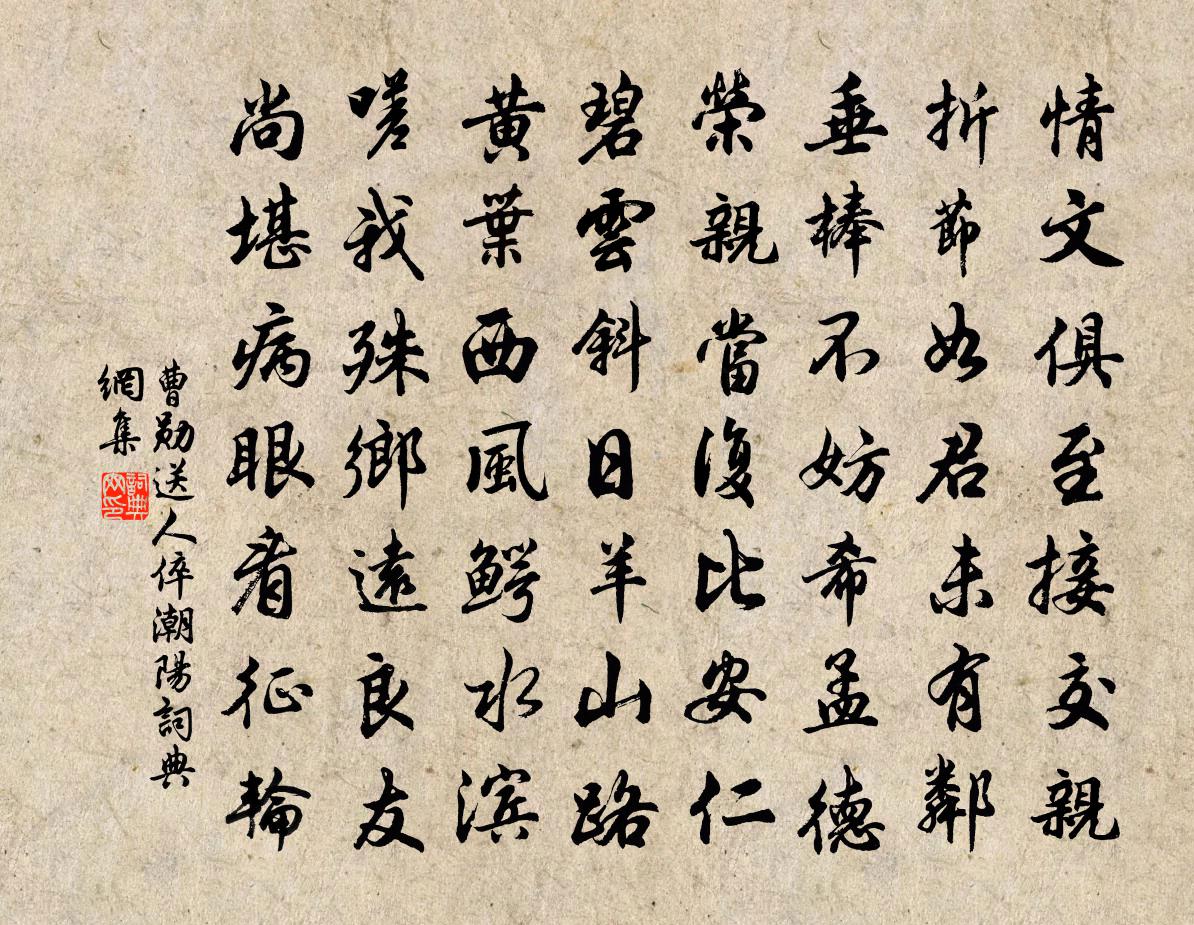 情文俱至接交親
折節如君未有鄰
垂棒不妨希孟德
榮親當復比安仁
碧雲斜日羊山路
黃葉西風鰐水濱
嗟我殊鄉遠良友
尚堪病眼看征輪
曹勛送人倅潮陽詞典
網集
詞典
网印